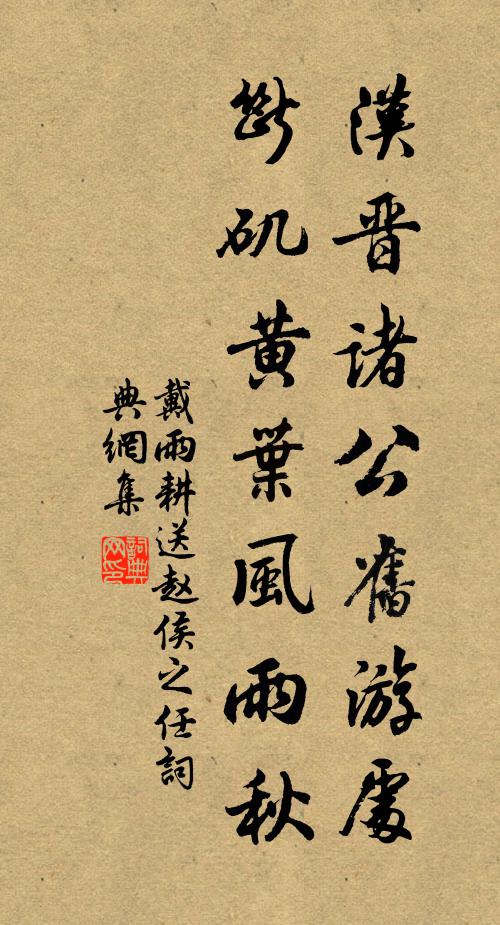 漢晋諸公舊游處
断矶黄葉風雨秋
戴雨耕送赵侯之任詞
典網集
詞典网印